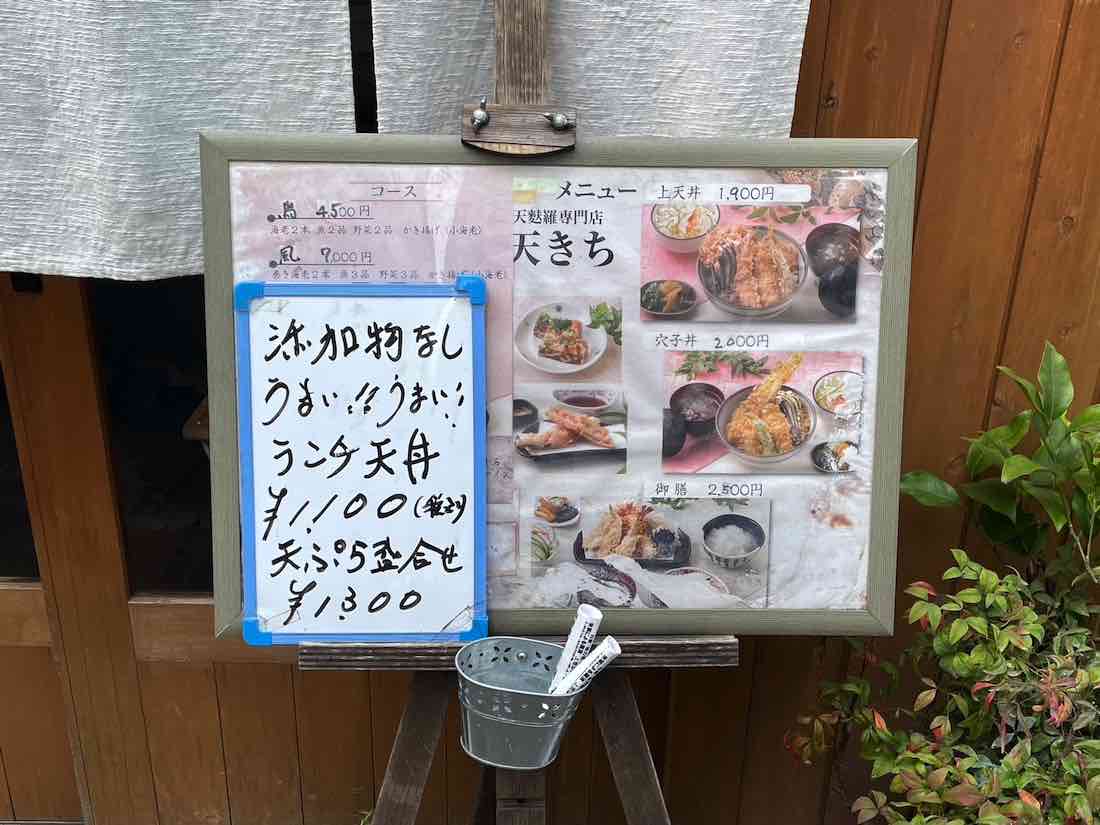 コース
4,500円
海老2本 魚2品 野菜2品 かき揚げ(小海老)
風 7,000円
海老2本 魚3品 野菜3品 かき揚げ(小海老)
添加物なし
うまい!!うまい!
ランチ天丼
¥1,100(税込)
天ぷら盛合せ
¥1,300
メニュー
天麩羅専門店
天きち
上天丼 1,900円
穴子丼 2,000円
御膳 2,500円